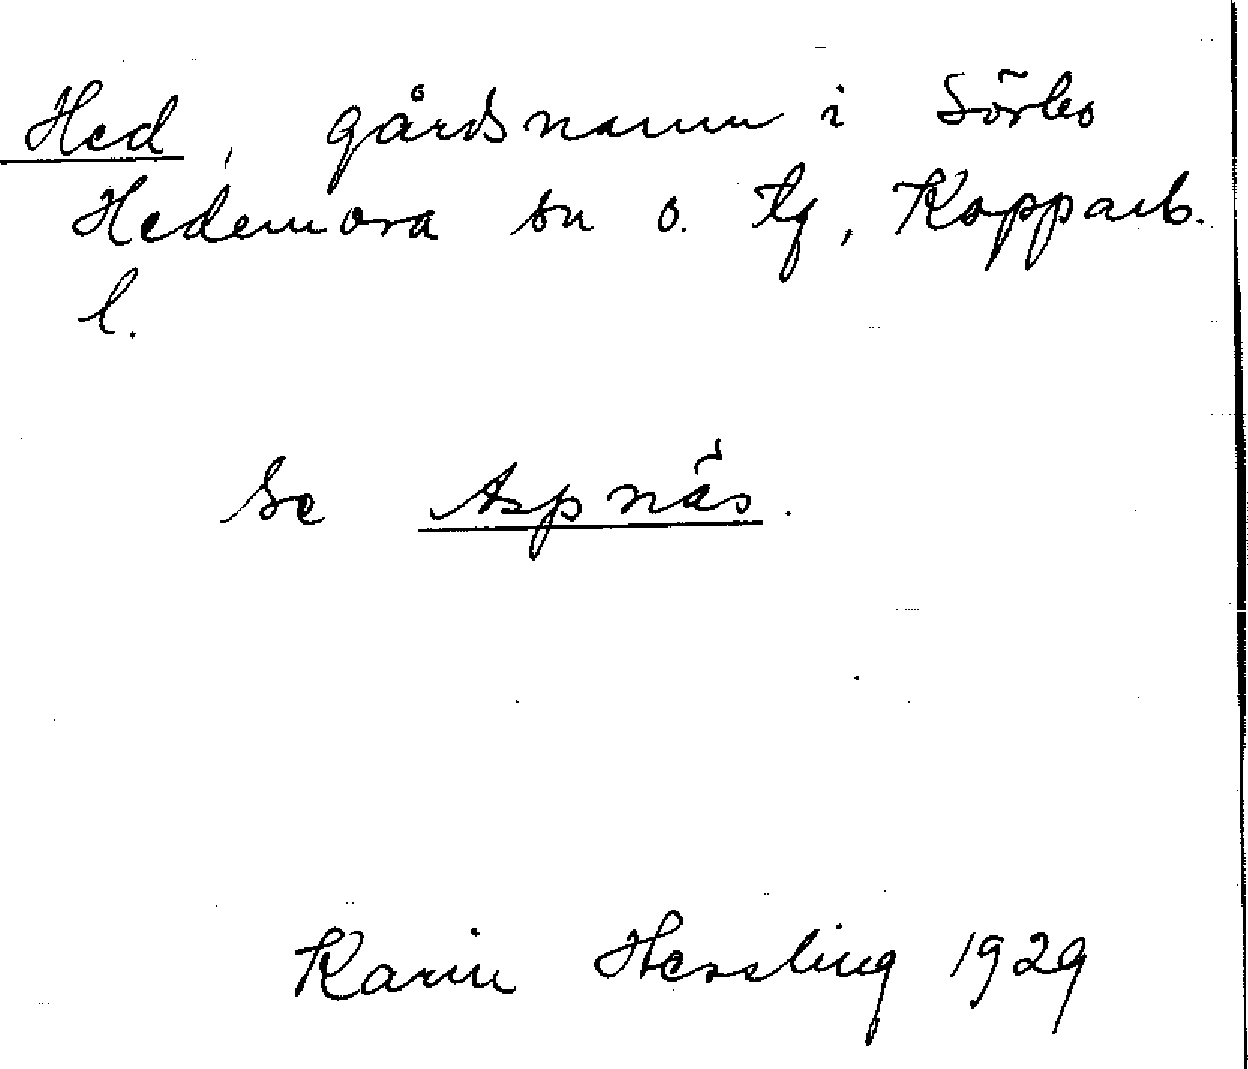 Hed, gårdsnamn i Sörbo
Hedemora sn o. tg, Kopparb.
l.
Se Aspnäs.
Karin Hessling 1929